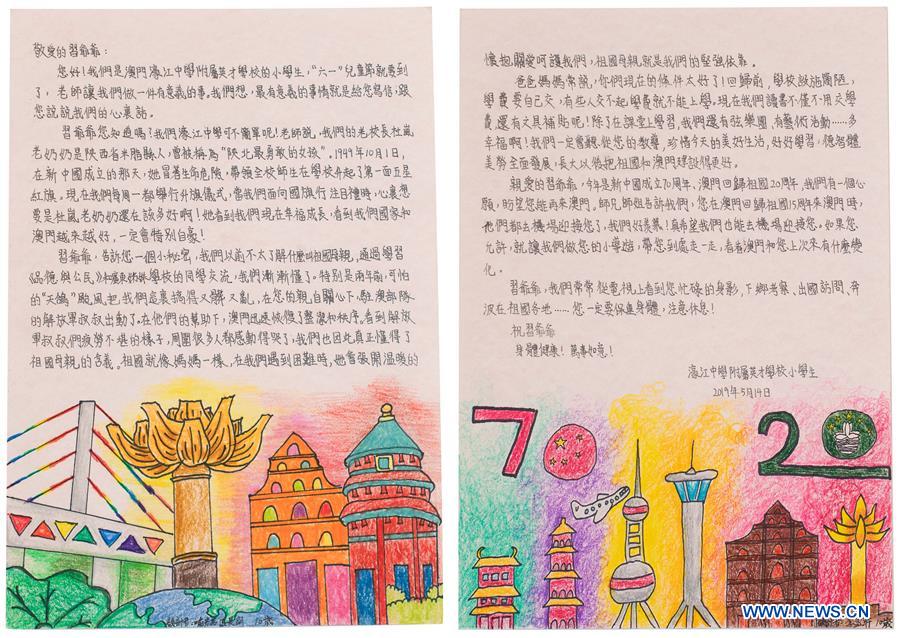 敬愛的習爺爺：
您好！我們是澳門濠江中學附屬英才學校的小學生，“六一”兒童節就要到
了，老師讓我們做一件有意義的事。我們想，最有意義的事情就是給您寫信，跟
您說說我們的心裏話。
習爺爺您知道嗎？我們濠江中學可不簡單呢！老師說，我們的老校長杜嵐
老奶奶是陝西省米脂縣人，曾被稱為“陝北最勇敢的女孩”。1949年10月1日，
在新中國成立的那天，她冒著生命危險，帶領全校師生在學校升起了第一面五星
紅旗。現在我們每周一都舉行升旗儀式，當我們面向國旗行注目禮時，心裏想
要是杜嵐老奶奶還在該多好啊！她看到我們現在幸福成長，看到我們國家和
澳門越來越好，一定會特別自豪！
習爺爺，告訴您一個小秘密，我們以前不太了解什麼叫祖國母親，通過學習
《品德與公民》和學校的同學交流，我們漸漸懂了。特別是兩年前，可怕
的“天鴿”颱風把我們這裏搞得又髒又亂，在您的親自關心下，駐澳部隊
的解放軍叔叔出動了。在他們的幫助下，澳門迅速恢復了整潔和秩序。看到解放
軍叔叔們疲勞不堪的樣子，周圍很多人都感動得哭了，我們也因此真正懂得了
祖國母親的含義。祖國就像媽媽一樣，在我們遇到困難時，她會張開溫暖的
10歲
懷抱，關愛呵護我們，祖國母親就是我們的堅強依靠。
爸爸媽媽常說，你們現在的條件太好了！回歸前，學校設施簡陋，
學費要自己交，有些人交不起學費就不能上學。現在我們讀書不僅不用交學
費還有文具補貼呢！除了在課堂上學習，我們還有弦樂團，有藝術活動……多
幸福啊！我們一定會聽從您的教導，珍惜今天的美好生活，好好學習，德智體
美勞全面發展，長大以後把祖國和澳門建設得更好。
親愛的習爺爺，今年是新中國成立70周年、澳門回歸祖國20周年，我們有一個心
願，盼望您能再來澳門。師兄師姐告訴我們，您在澳門回歸祖國15周年來澳門時，
他們都去機場迎接您了，我們好羨慕！真希望我們也能去機場迎接您。如果您
允許，就讓我們做您的小導遊，帶您到處走一走，看看澳門和您上次來有什麼變
化。
習爺爺，我們常常從電視上看到您忙碌的身影，下鄉考察、出國訪問、奔
波在祖國各地……您一定要保重身體，注意休息！
祝習爺爺
身體健康！萬事如意！
濠江中學附屬英才學校小學生
2019年5月14日
70
20
10歲
WWW.NEWS.CN